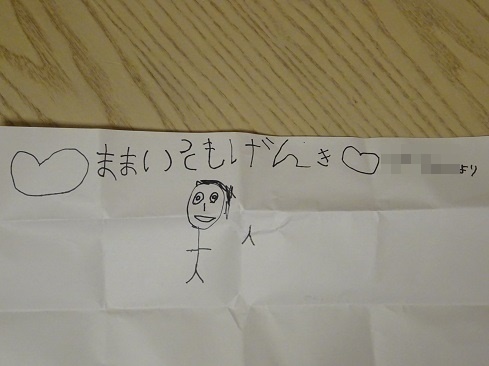 ♡ままいつもげんき♡ より